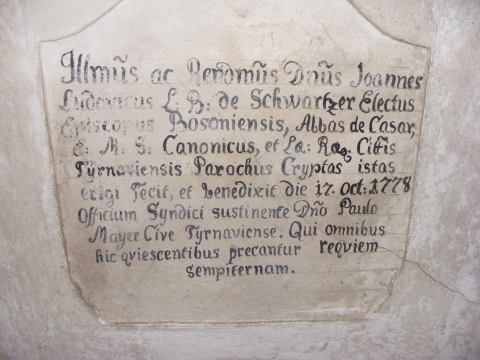 Illmũs ac Rendmũs Dnũs Joannes
Ludovicus L. B. de Schwartzer Electus
Episcopus Bosoniensis, Abbas de Casar,
E. M. S. Canonicus, et Læ: Ragq Cittis
Tyrnaviensis Parochus Cryptas istas
erigi Fecit, et benedixit die 17. Oct: 1778
Officium Syndici sustinente Dño Paulo
Mayer Cive Tyrnaviense. Qui omnibus
hic qviescentibus precantur reqviem
Sempiternam.